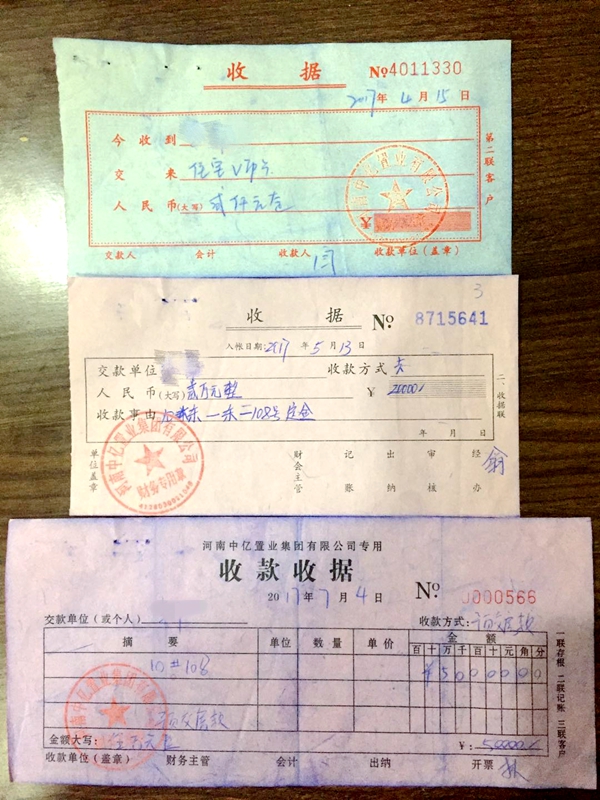 收 据 №4011330
2017年 4月 15日
今 收 到
交 来 住宅V币卡
人 民 币(大写) 贰仟元整
第二联客户
交款人 会计 收款人 闫 收款单位(盖章)
3
收 据 №. 8715641
入帐日期:2017 年 5 月 13 日
交款单位 收款方式
人 民 币(大写)贰万元整 ¥ 20000
收款事由 一东-108号定金
年 月 日
二、收据联
单位盖章 财会主管 记账 出纳 审核 经办
河南中亿置业集团有限公司
河南中亿置业集团有限公司专用
收款收据
2017年 7月 4日 №. 0000566
交款单位(或个人): 收款方式: 预收款
摘 要 单位 数量 单价 金额
百 十 万 千 百 十 元 角 分
10#108 ¥ 5 0 0 0 0 0 0
预收房款
金额大写: 伍万元整 ¥: 50000
收款单位(盖章) 财务主管 会计 出纳 开票
一联存根 二联记账 三联客户